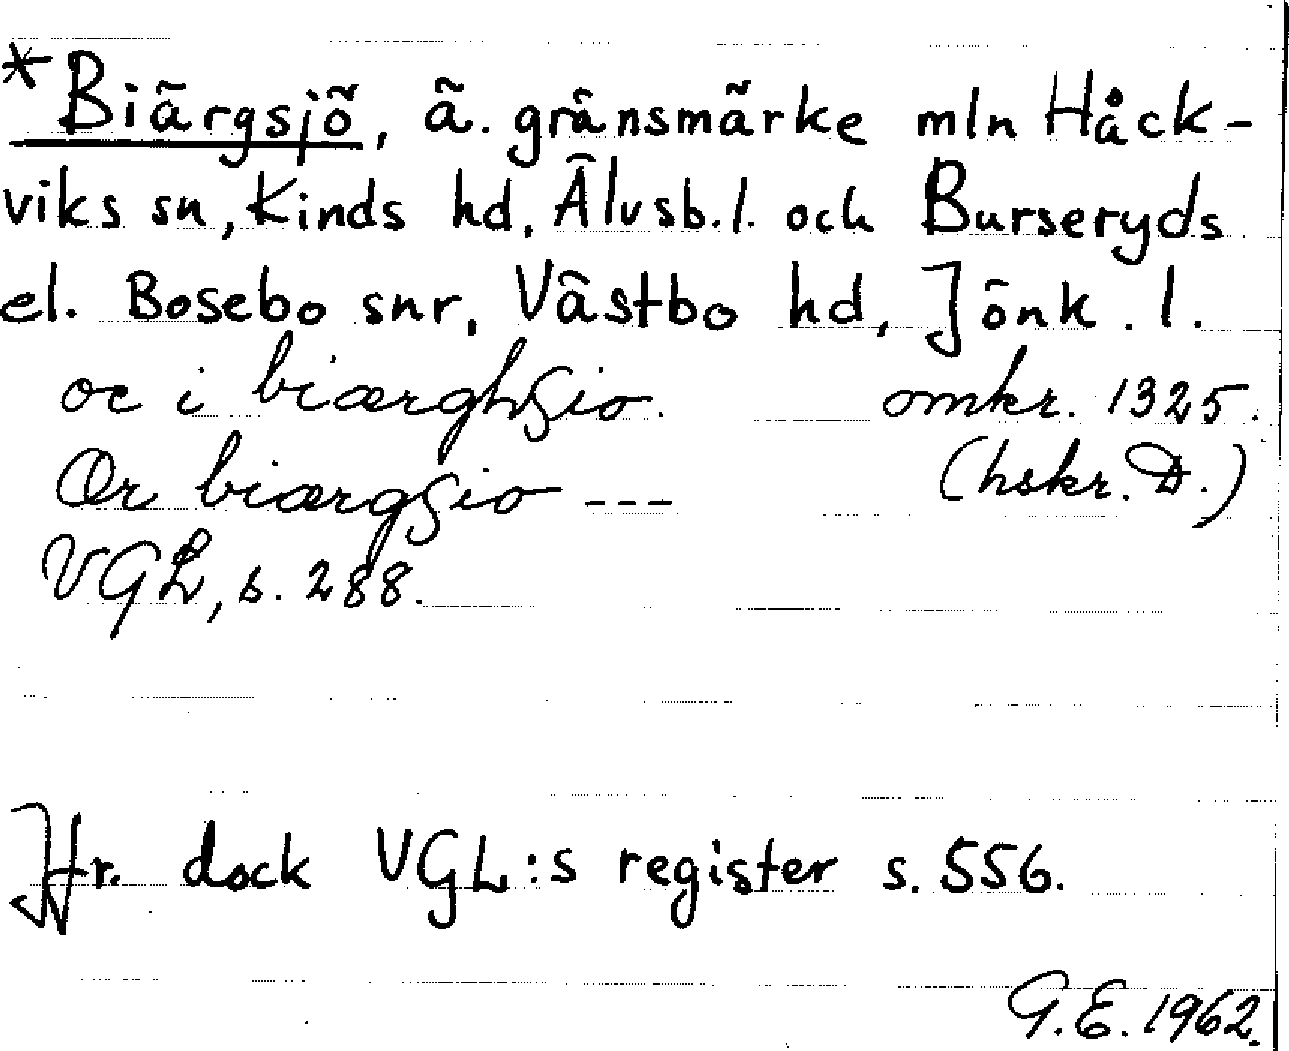 *Biärgsjö, ä. gränsmärke mln Håck-
viks sn, Kinds hd, Älvsb.l. och Burseryds
el. Bosebo snr, Västbo hd, Jönk. l.
oc i biærghsio. omkr. 1325.
Or biærgsio --- (hskr. D.)
VGL, s. 288.
Jfr. dock VGL:s register s. 556.
G.E. 1962.